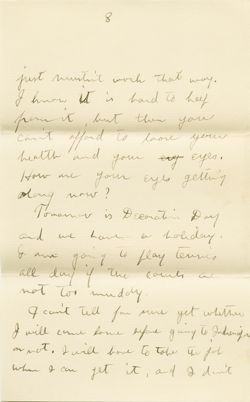 8
just mustn't work that way.
I know it is hard to keep
from it, but then you
can't afford to loose your
health and your eyes.
How are your eyes getting
along now?
Tomorrow is Decoration Day
and we have a holiday.
& am going to play tennis
all day if the courts are
not too muddy.
I can't tell for sure yet whether
I will come home before going to
or not. I will have to take the job
when I can get it, and I don't